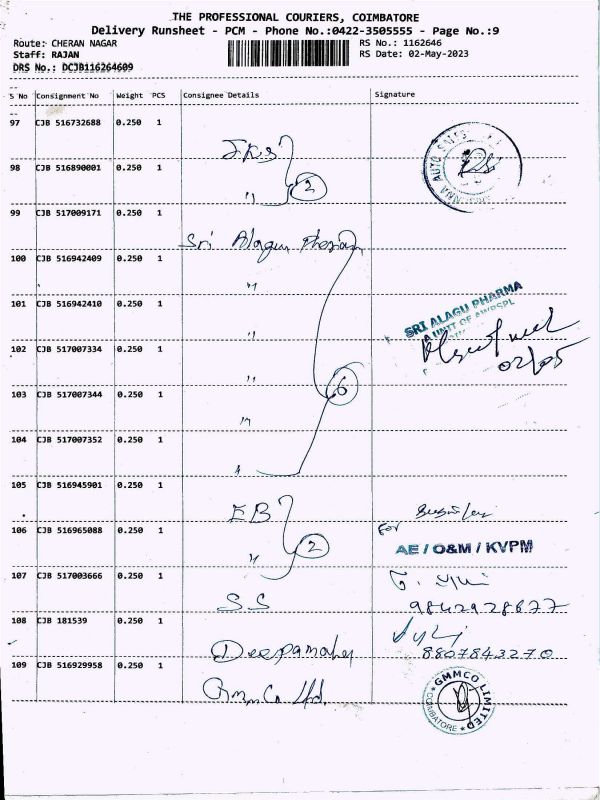 THE PROFESSIONAL COURIERS, COIMBATORE
Delivery Runsheet - PCM - Phone No.:0422-3505555 - Page No.:9
Route: CHERAN NAGAR
RS No.: 1162646
Staff: RAJAN
RS Date: 02-May-2023
DRS No.: DCJB116264609
S No Consignment No Weight PCS Consignee Details Signature
97 CJB 516732688 0.250 1
98 CJB 516890001 0.250 1
" 2
99 CJB 517009171 0.250 1
Sri Alagu Pharma
100 CJB 516942409 0.250 1
"
101 CJB 516942410 0.250 1
"
SRI ALAGU PHARMA
A UNIT OF AWPSPL
02/05
102 CJB 517007334 0.250 1
"
103 CJB 517007344 0.250 1
" 6
104 CJB 517007352 0.250 1
"
105 CJB 516945901 0.250 1
EB
106 CJB 516965088 0.250 1
for
AE / O&M / KVPM
" 2
107 CJB 517003666 0.250 1
SS
9842928677
108 CJB 181539 0.250 1
8807843270
109 CJB 516929958 0.250 1
Gmmco Ltd.
GMMCO LIMITED
COIMBATORE